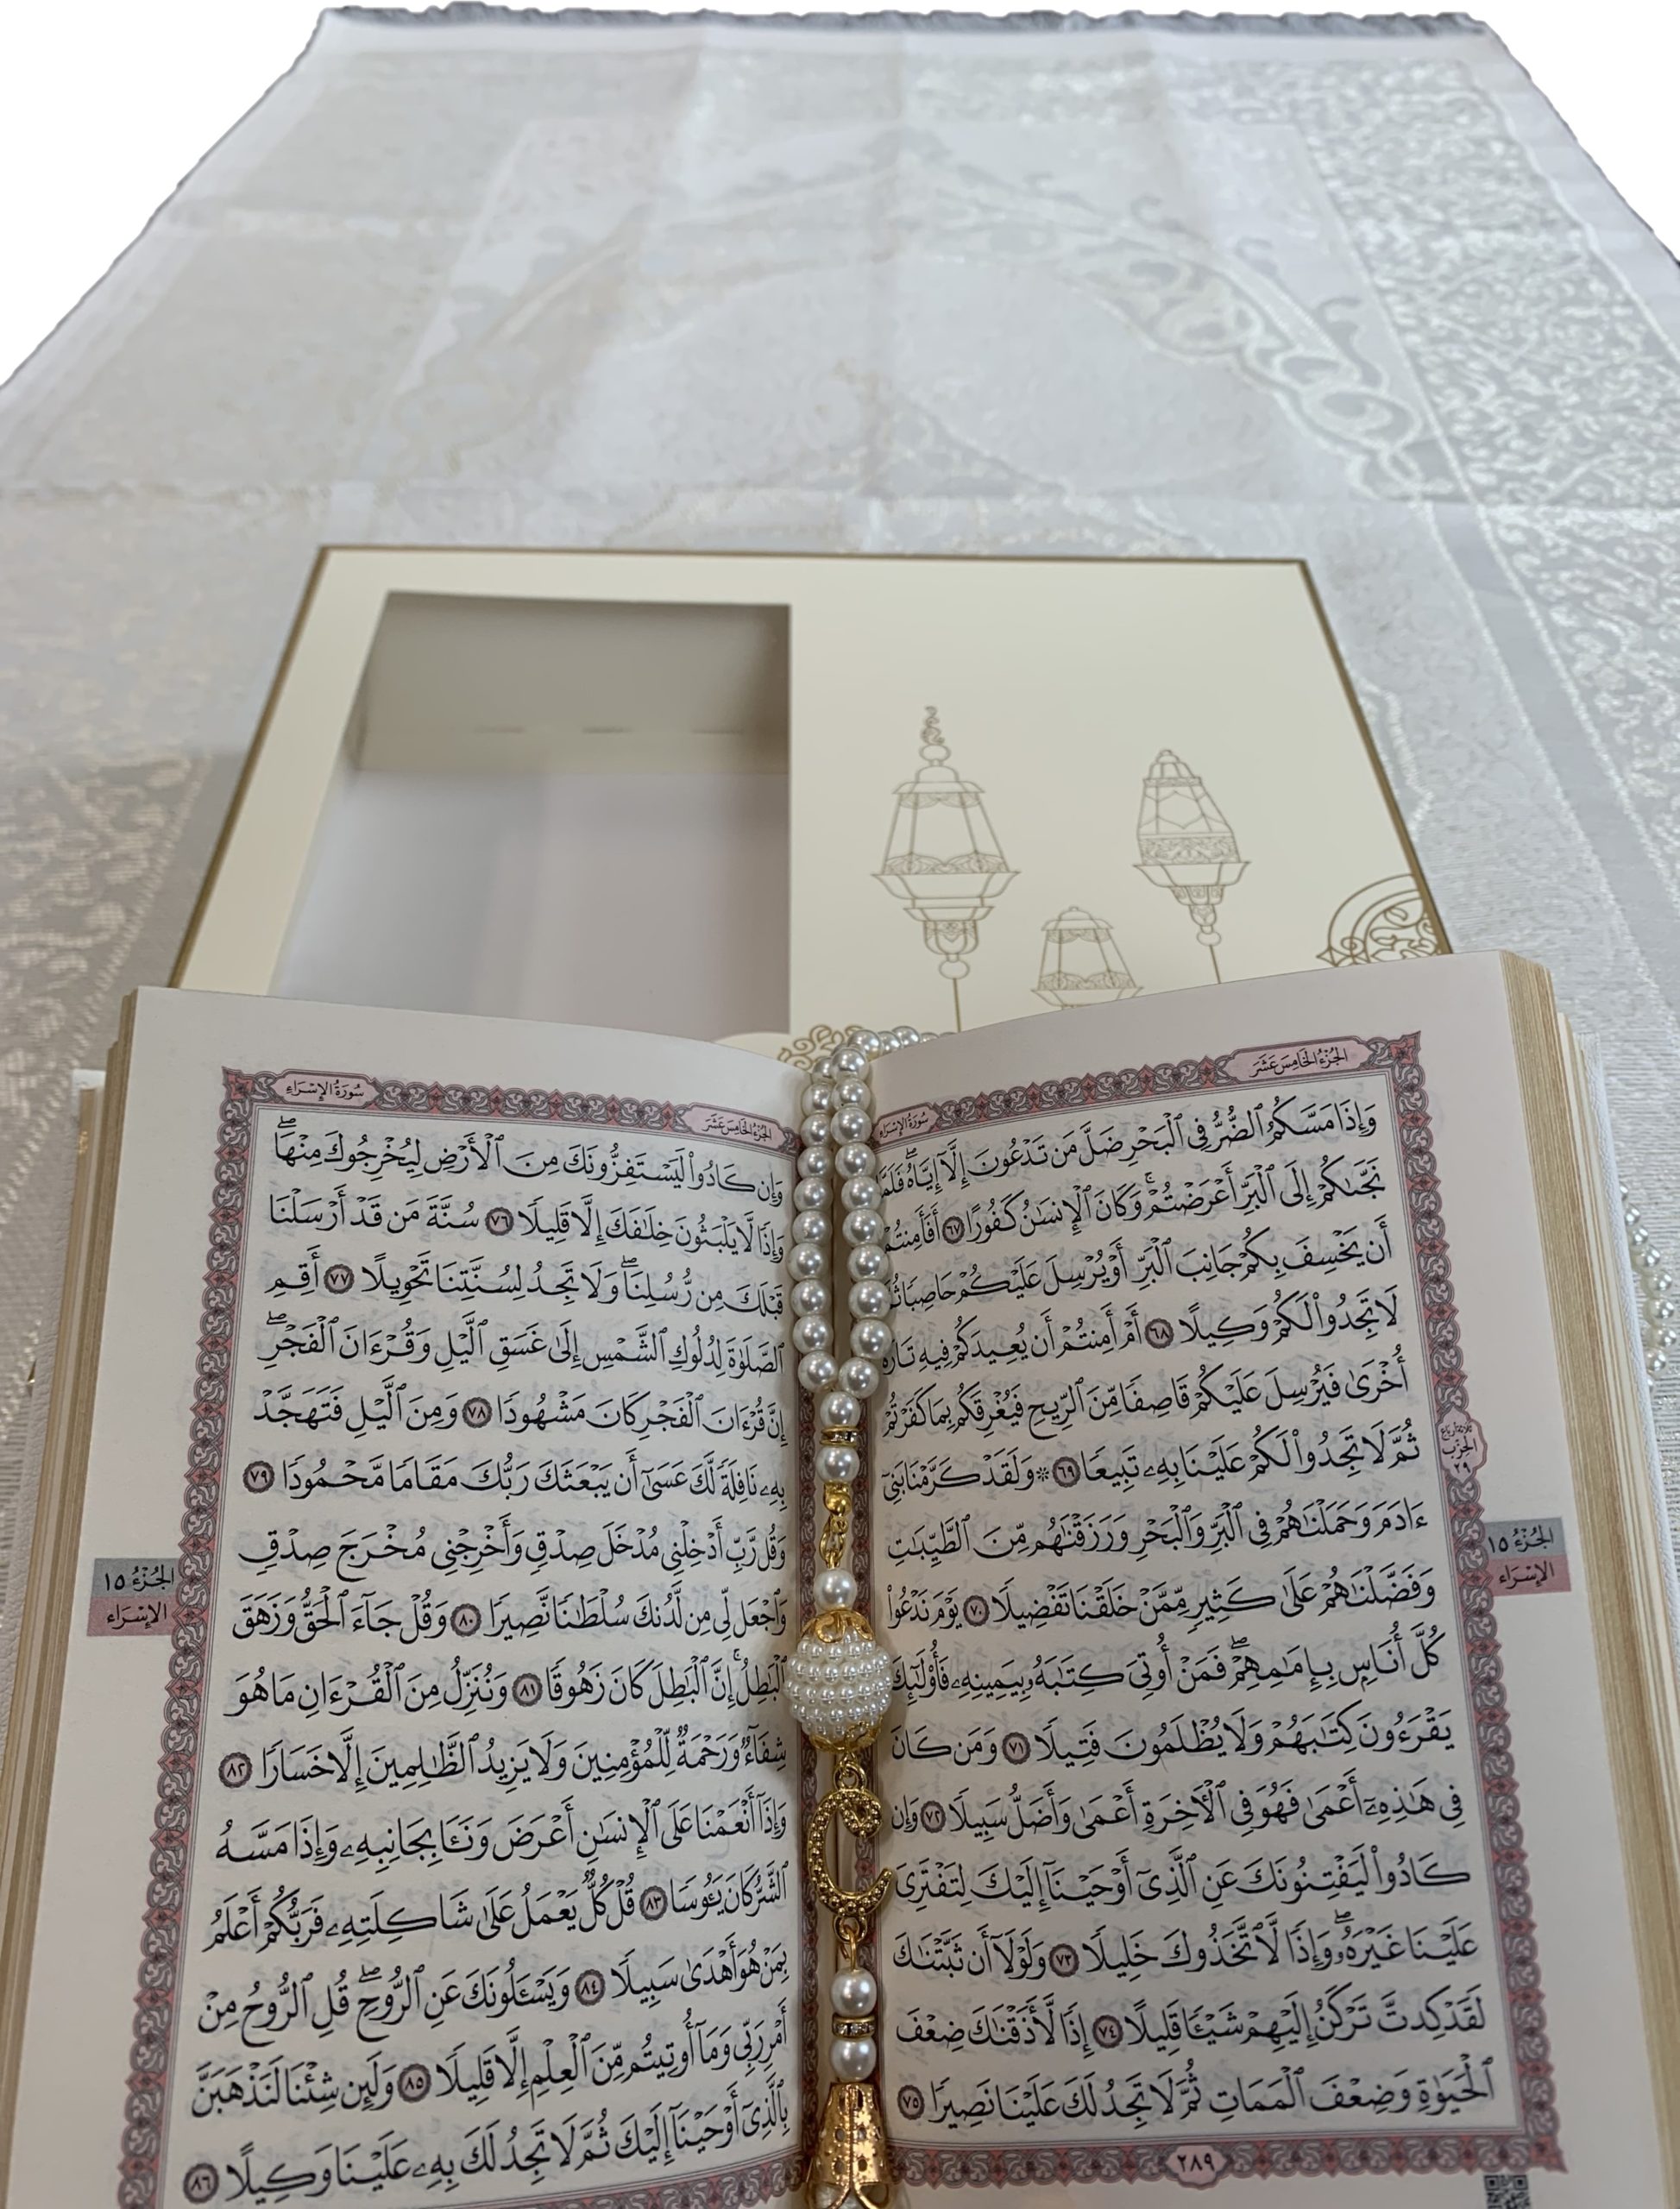 الجزء الخامس عشر
سورة الإسراء
وَإِذَا مَسَّكُمُ ٱلضُّرُّ فِي ٱلْبَحْرِ ضَلَّ مَن تَدْعُونَ إِلَّآ إِيَّاهُۖ فَلَمَّا
نَجَّىٰكُمْ إِلَى ٱلْبَرِّ أَعْرَضْتُمْۚ وَكَانَ ٱلْإِنسَٰنُ كَفُورًا ٦٧ أَفَأَمِنتُمْ
أَن يَخْسِفَ بِكُمْ جَانِبَ ٱلْبَرِّ أَوْ يُرْسِلَ عَلَيْكُمْ حَاصِبًا ثُمَّ
لَا تَجِدُوا۟ لَكُمْ وَكِيلًا ٦٨ أَمْ أَمِنتُمْ أَن يُعِيدَكُمْ فِيهِ تَارَةً
أُخْرَىٰ فَيُرْسِلَ عَلَيْكُمْ قَاصِفًا مِّنَ ٱلرِّيحِ فَيُغْرِقَكُم بِمَا كَفَرْتُمْ
ثُمَّ لَا تَجِدُوا۟ لَكُمْ عَلَيْنَا بِهِۦ تَبِيعًا ٦٩ ۞ وَلَقَدْ كَرَّمْنَا بَنِيٓ
ءَادَمَ وَحَمَلْنَٰهُمْ فِي ٱلْبَرِّ وَٱلْبَحْرِ وَرَزَقْنَٰهُم مِّنَ ٱلطَّيِّبَٰتِ
وَفَضَّلْنَٰهُمْ عَلَىٰ كَثِيرٍ مِّمَّنْ خَلَقْنَا تَفْضِيلًا ٧٠ يَوْمَ نَدْعُوا۟
كُلَّ أُنَاسٍۭ بِإِمَٰمِهِمْۖ فَمَنْ أُوتِيَ كِتَٰبَهُۥ بِيَمِينِهِۦ فَأُو۟لَٰٓئِكَ
يَقْرَءُونَ كِتَٰبَهُمْ وَلَا يُظْلَمُونَ فَتِيلًا ٧١ وَمَن كَانَ
فِي هَٰذِهِۦٓ أَعْمَىٰ فَهُوَ فِي ٱلْأٓخِرَةِ أَعْمَىٰ وَأَضَلُّ سَبِيلًا ٧٢ وَإِن
كَادُوا۟ لَيَفْتِنُونَكَ عَنِ ٱلَّذِيٓ أَوْحَيْنَآ إِلَيْكَ لِتَفْتَرِيَ
عَلَيْنَا غَيْرَهُۥۖ وَإِذًا لَّٱتَّخَذُوكَ خَلِيلًا ٧٣ وَلَوْلَآ أَن ثَبَّتْنَٰكَ
لَقَدْ كِدتَّ تَرْكَنُ إِلَيْهِمْ شَيْـًٔا قَلِيلًا ٧٤ إِذًا لَّأَذَقْنَٰكَ ضِعْفَ
ٱلْحَيَوٰةِ وَضِعْفَ ٱلْمَمَاتِ ثُمَّ لَا تَجِدُ لَكَ عَلَيْنَا نَصِيرًا ٧٥
٢٨٩
الحزب
٢٩
الجزء ١٥
الإسراء
الجزء الخامس عشر
سورة الإسراء
وَإِن كَادُوا۟ لَيَسْتَفِزُّونَكَ مِنَ ٱلْأَرْضِ لِيُخْرِجُوكَ مِنْهَاۖ
وَإِذًا لَّا يَلْبَثُونَ خِلَٰفَكَ إِلَّا قَلِيلًا ٧٦ سُنَّةَ مَن قَدْ أَرْسَلْنَا
قَبْلَكَ مِن رُّسُلِنَاۖ وَلَا تَجِدُ لِسُنَّتِنَا تَحْوِيلًا ٧٧ أَقِمِ
ٱلصَّلَوٰةَ لِدُلُوكِ ٱلشَّمْسِ إِلَىٰ غَسَقِ ٱلَّيْلِ وَقُرْءَانَ ٱلْفَجْرِۖ
إِنَّ قُرْءَانَ ٱلْفَجْرِ كَانَ مَشْهُودًا ٧٨ وَمِنَ ٱلَّيْلِ فَتَهَجَّدْ
بِهِۦ نَافِلَةً لَّكَ عَسَىٰٓ أَن يَبْعَثَكَ رَبُّكَ مَقَامًا مَّحْمُودًا ٧٩
وَقُل رَّبِّ أَدْخِلْنِي مُدْخَلَ صِدْقٍ وَأَخْرِجْنِي مُخْرَجَ صِدْقٍ
وَٱجْعَل لِّي مِن لَّدُنكَ سُلْطَٰنًا نَّصِيرًا ٨٠ وَقُلْ جَآءَ ٱلْحَقُّ وَزَهَقَ
ٱلْبَٰطِلُۚ إِنَّ ٱلْبَٰطِلَ كَانَ زَهُوقًا ٨١ وَنُنَزِّلُ مِنَ ٱلْقُرْءَانِ مَا هُوَ
شِفَآءٌ وَرَحْمَةٌ لِّلْمُؤْمِنِينَ وَلَا يَزِيدُ ٱلظَّٰلِمِينَ إِلَّا خَسَارًا ٨٢
وَإِذَآ أَنْعَمْنَا عَلَى ٱلْإِنسَٰنِ أَعْرَضَ وَنَـَٔا بِجَانِبِهِۦ وَإِذَا مَسَّهُ
ٱلشَّرُّ كَانَ يَـُٔوسًا ٨٣ قُلْ كُلٌّ يَعْمَلُ عَلَىٰ شَاكِلَتِهِۦ فَرَبُّكُمْ أَعْلَمُ
بِمَنْ هُوَ أَهْدَىٰ سَبِيلًا ٨٤ وَيَسْـَٔلُونَكَ عَنِ ٱلرُّوحِۖ قُلِ ٱلرُّوحُ مِنْ
أَمْرِ رَبِّي وَمَآ أُوتِيتُم مِّنَ ٱلْعِلْمِ إِلَّا قَلِيلًا ٨٥ وَلَئِن شِئْنَا لَنَذْهَبَنَّ
بِٱلَّذِيٓ أَوْحَيْنَآ إِلَيْكَ ثُمَّ لَا تَجِدُ لَكَ بِهِۦ عَلَيْنَا وَكِيلًا ٨٦
الجزء ١٥
الإسراء